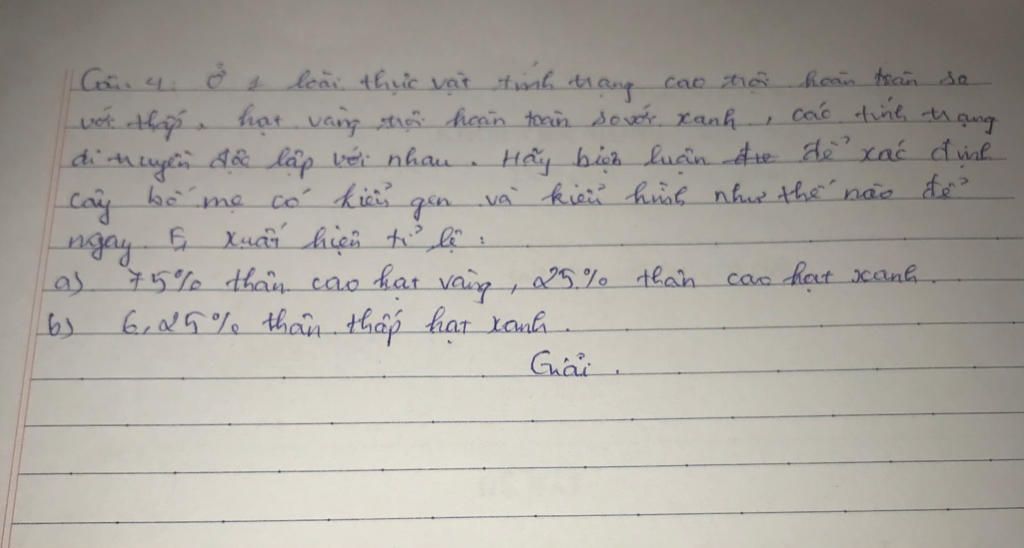 Câu 4: Ở 1 loài thực vật tính trạng cao trội hoàn toàn so
với thấp, hạt vàng trội hoàn toàn so với xanh, các tính trạng
di truyền độc lập với nhau. Hãy biện luận để xác định
cây bố mẹ có kiểu gen và kiểu hình như thế nào để
ngay F1 xuất hiện tỉ lệ:
a) 75% thân cao hạt vàng, 25% thân cao hạt xanh.
b) 6,25% thân thấp hạt xanh.
Giải.